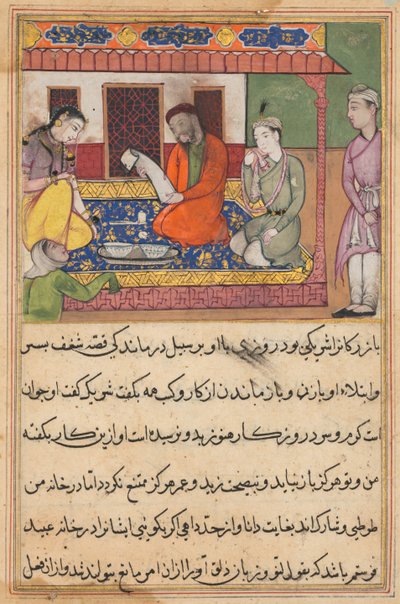 بازرکانرا شریکی بود روزی با او برسبیل درماندکی قصه شغف پسر
و ابتلاء او بازن و بازماندن از کار و کسب همه بکفت شریک گفت او جوان
است کرم و سرد روزکار هنوز ندیده و نرسیده است او ازین کار بکفته
من و تو هرکز باز نیاید و بنصیحت زید و عمر هرکز ممتنع نکردد اما در خانه من
طوطی و شارک اند بغایت دانا و از حد داهی اکر بکوئی ایشانرا در خانه عبید
فرستم باشد که بقول و زبان ذلق او را ازان امر مانع بتوانند شد و ازان فعل